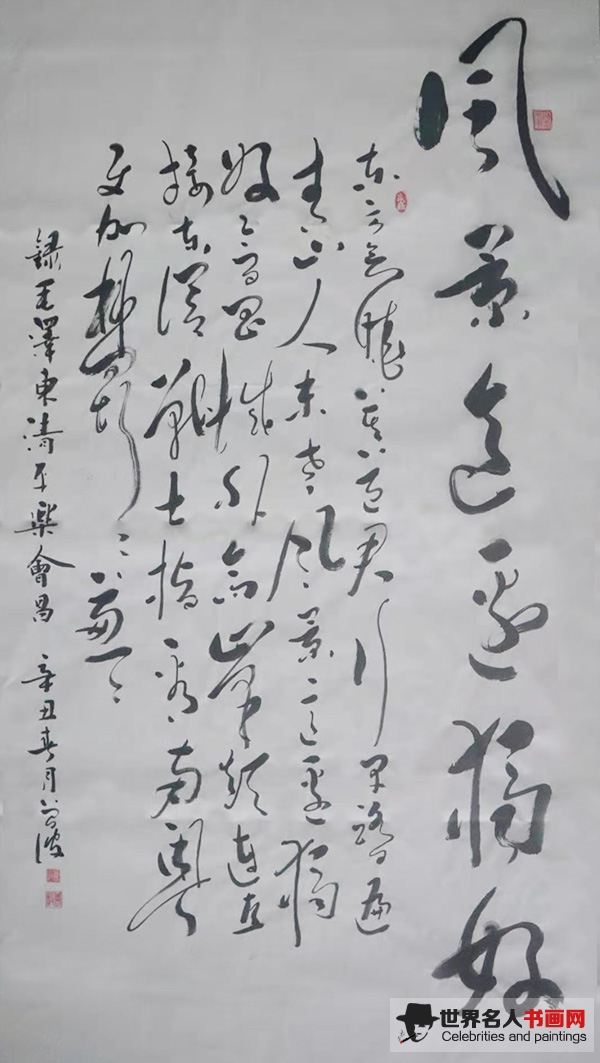 风景这边独好
东方欲晓莫道君行早踏遍
青山人未老风景这边独
好会昌城外高峰颠连直
接东溟战士指看南粤
更加郁郁葱葱
錄毛澤東清平樂會昌 辛丑春月
世界名人书画网
Celebrities and paintings